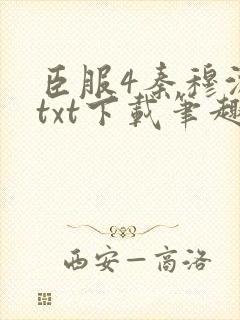 臣服4秦穆
txt下载笔趣
西安—商洛